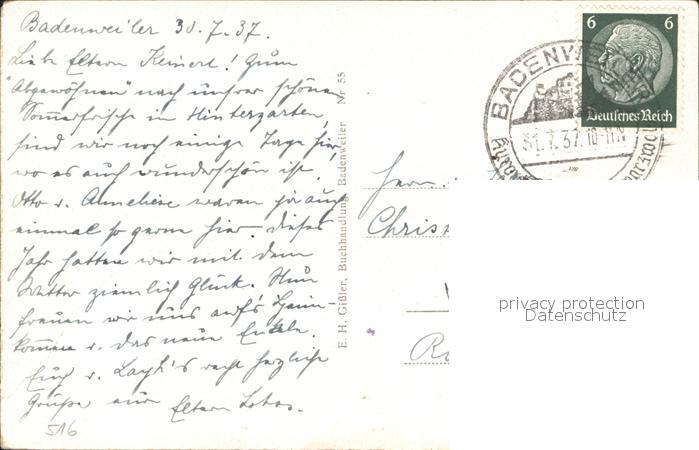 Badenweiler 30.7.37.
Liebe Eltern Keinert! Zum
"Abgewöhnen" nach unsrer schönen
Sommerfrische in Hinterzarten,
sind wir noch einige Tage hier,
wo es auch wunderschön ist.
Otto u. Anneliese waren ja auch
einmal so gern hier. Dieses
Jahr hatten wir mit dem
Wetter ziemlich Glück. Nun
freuen wir uns auf's Heim-
kommen u. das neue Enkele.
Euch u. Layh's recht herzliche
Grüße von Eltern
516
E. H. Gißler, Buchhandlung, Badenweiler Nr 55
6 6
Deutsches Reich
BADENWEILER
31.7.37.10-11N
Herrn
Chris
privacy protection
Datenschutz